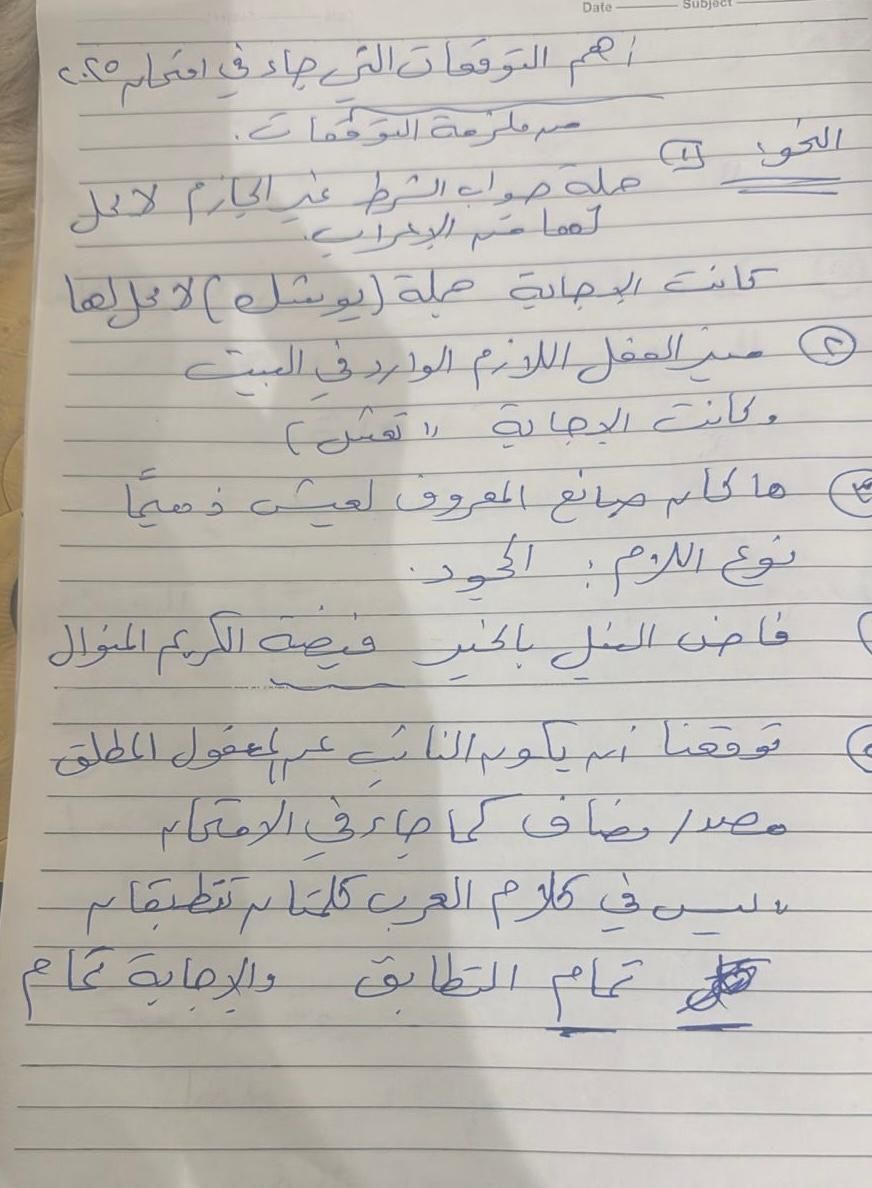 Date Subject
أهم التوقعات التي جاءت في امتحان ٢٠٢٥
من ملزمة التوقعات.
النحو: ١ جملة جواب الشرط غير الجازم لا محل
لها من الإعراب.
كانت الإجابة جملة (يوشك) لا محل لها
٢ ميز الفعل اللازم الوارد في البيت
وكانت الإجابة " تعش )
٣ ما كان صانع المعروف ليعيش ذميمًا
نوع اللام : الجحود.
فاض النيل بالخير فيضة الكريم المنوال
توقعنا أن يكون النائب عن المفعول المطلق
مصدر/ مضاف كما جاء في الامتحان
" ليس في كلام العرب كلمتان تتطابقان
تمام التطابق والإجابة تمام